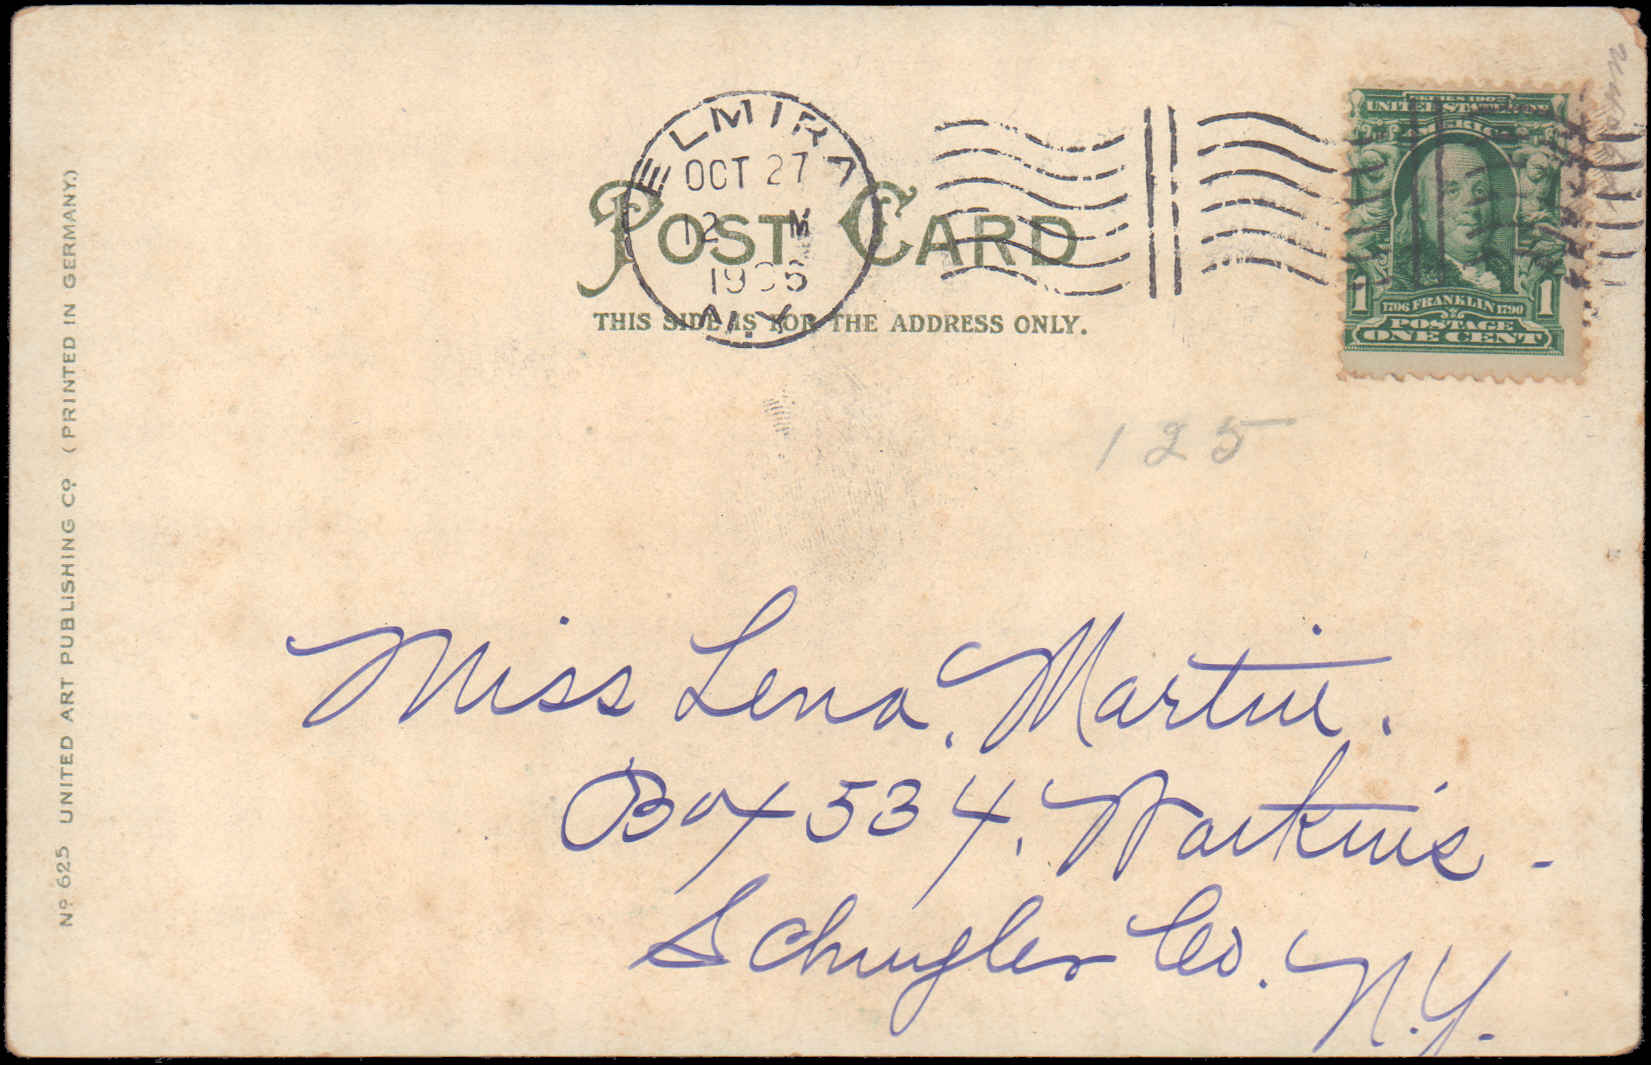 ELMIRA
OCT 27
12 M
N.Y.
POST CARD
THIS SIDE IS FOR THE ADDRESS ONLY.
SERIES 1902
UNITED STATES OF
AMERICA
1706 FRANKLIN 1790
1 1
POSTAGE
ONE CENT
125
Miss Lena, Martin.
Box 534, Watkins -
Schuyler Co. N.Y.
Nº 625 UNITED ART PUBLISHING Cº (PRINTED IN GERMANY.)